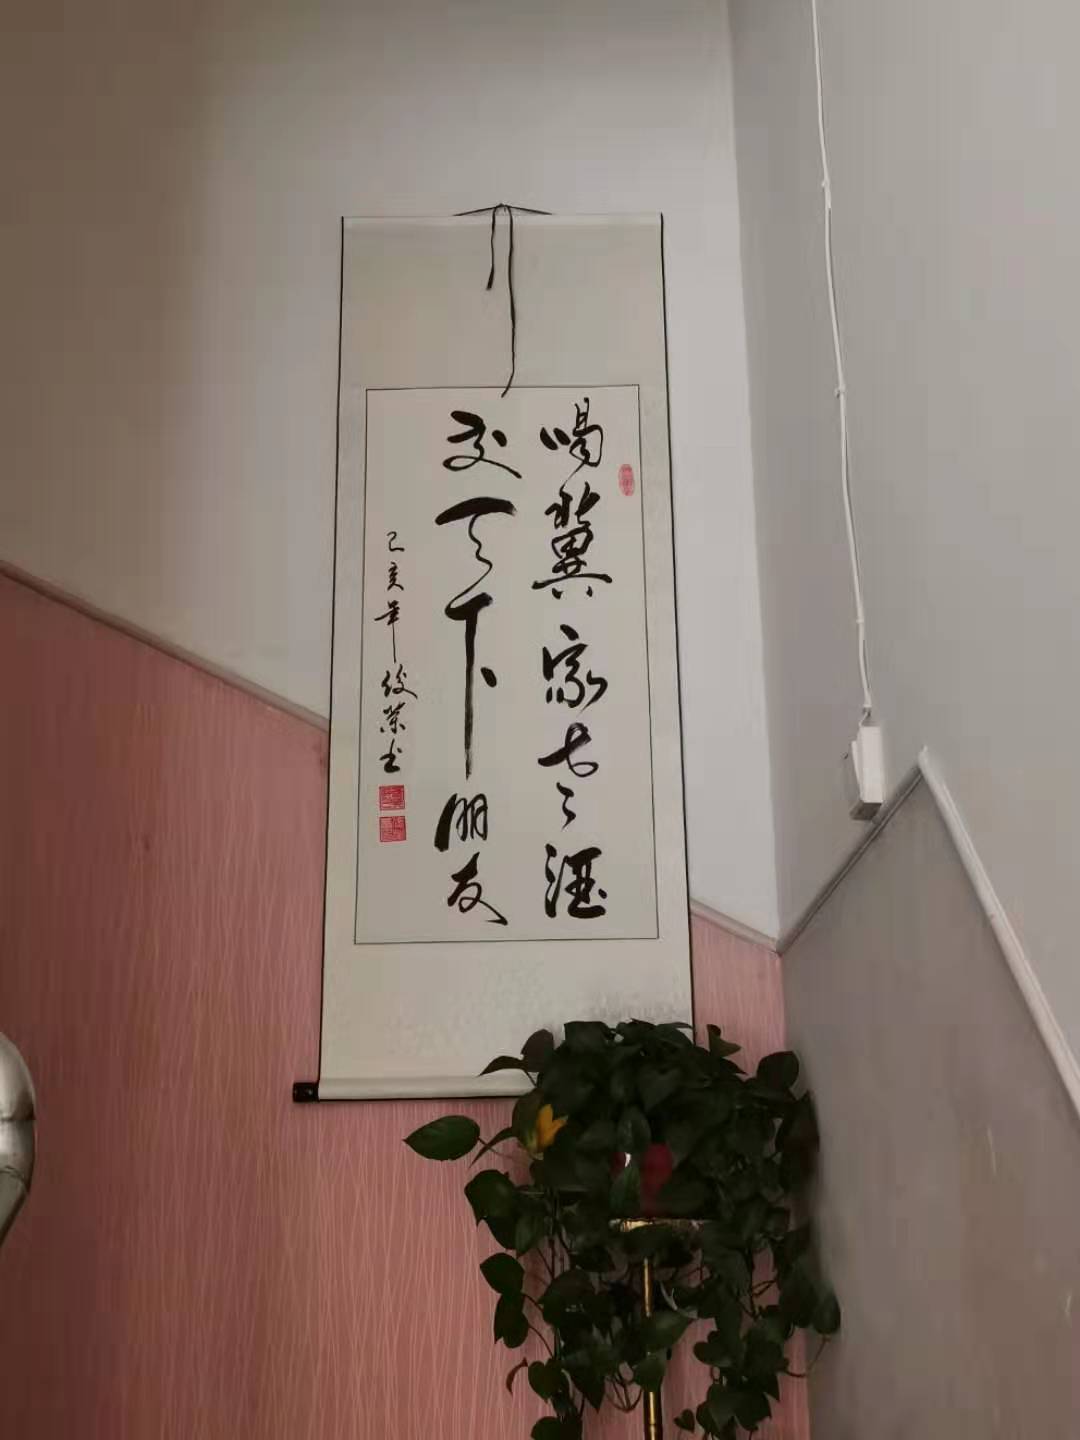 喝冀家老酒
交天下朋友
己亥年俊荣书